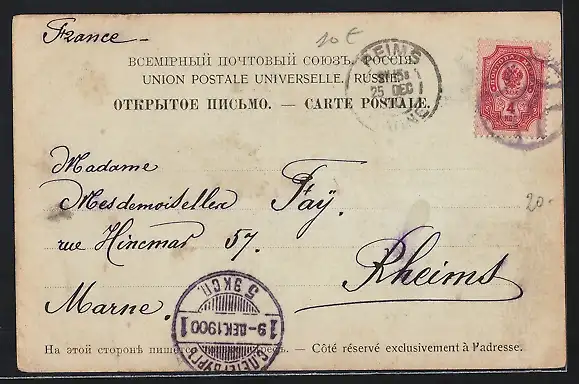 France
10 €
ВСЕМІРНЫЙ ПОЧТОВЫЙ СОЮЗЪ. РОССІЯ.
UNION POSTALE UNIVERSELLE. RUSSIE.
ОТКРЫТОЕ ПИСЬМО. — CARTE POSTALE.
REIMS
25 DEC
4
КОП
Madame
Mesdemoiselles Faÿ.
rue Hincmar 57.
20
Rheims
Marne.
5 ЭКСП.
19-ДЕК.1900 1
С.ПЕТЕРБУРГЪ
На этой сторонѣ — Côté réservé exclusivement à l'adresse.